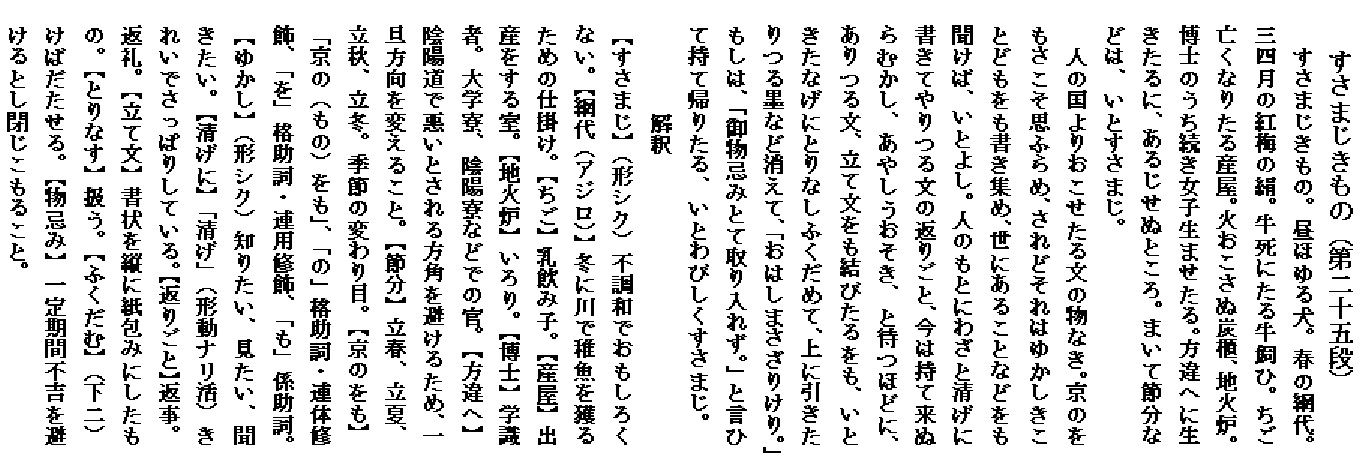 すさまじきもの（第二十五段）
すさまじきもの。昼ほゆる犬。春の網代。
三四月の紅梅の絹。牛死にたる牛飼ひ。ちご
亡くなりたる産屋。火おこさぬ炭櫃、地火炉。
博士のうち続き女子生ませたる。方違へに生
きたるに、あるじせぬところ。まいて節分な
どは、いとすさまじ。
人の国よりおこせたる文の物なき。京のを
もさこそ思ふらめ、されどそれはゆかしきこ
とどもをも書き集め、世にあることなどをも
聞けば、いとよし。人のもとにわざと清げに
書きてやりつる文の返りごと、今は持て来ぬ
らむかし、あやしうおそき、と待つほどに、
ありつる文、立て文をも結びたるをも、いと
きたなげにとりなしふくだめて、上に引きた
りつる墨など消えて、「おはしまさざりけり。」
もしは、「御物忌みとて取り入れず。」と言ひ
て持て帰りたる、いとわびしくすさまじ。
解釈
【すさまじ】（形シク）不調和でおもしろく
ない。【網代（アジロ）】冬に川で稚魚を獲る
ための仕掛け。【ちご】乳飲み子。【産屋】出
産をする室。【地火炉】いろり。【博士】学識
者。大学寮、陰陽寮などでの官。【方違へ】
陰陽道で悪いとされる方角を避けるため、一
旦方向を変えること。【節分】立春、立夏、
立秋、立冬。季節の変わり目。【京のをも】
「京の（もの）をも」、「の」格助詞・連体修
飾、「を」格助詞・連用修飾、「も」係助詞。
【ゆかし】（形シク）知りたい、見たい、聞
きたい。【清げに】「清げ」（形動ナリ活）き
れいでさっぱりしている。【返りごと】返事。
返礼。【立て文】書状を縦に紙包みにしたも
の。【とりなす】扱う。【ふくだむ】（下二）
けばだたせる。【物忌み】一定期間不吉を避
けるとし閉じこもること。